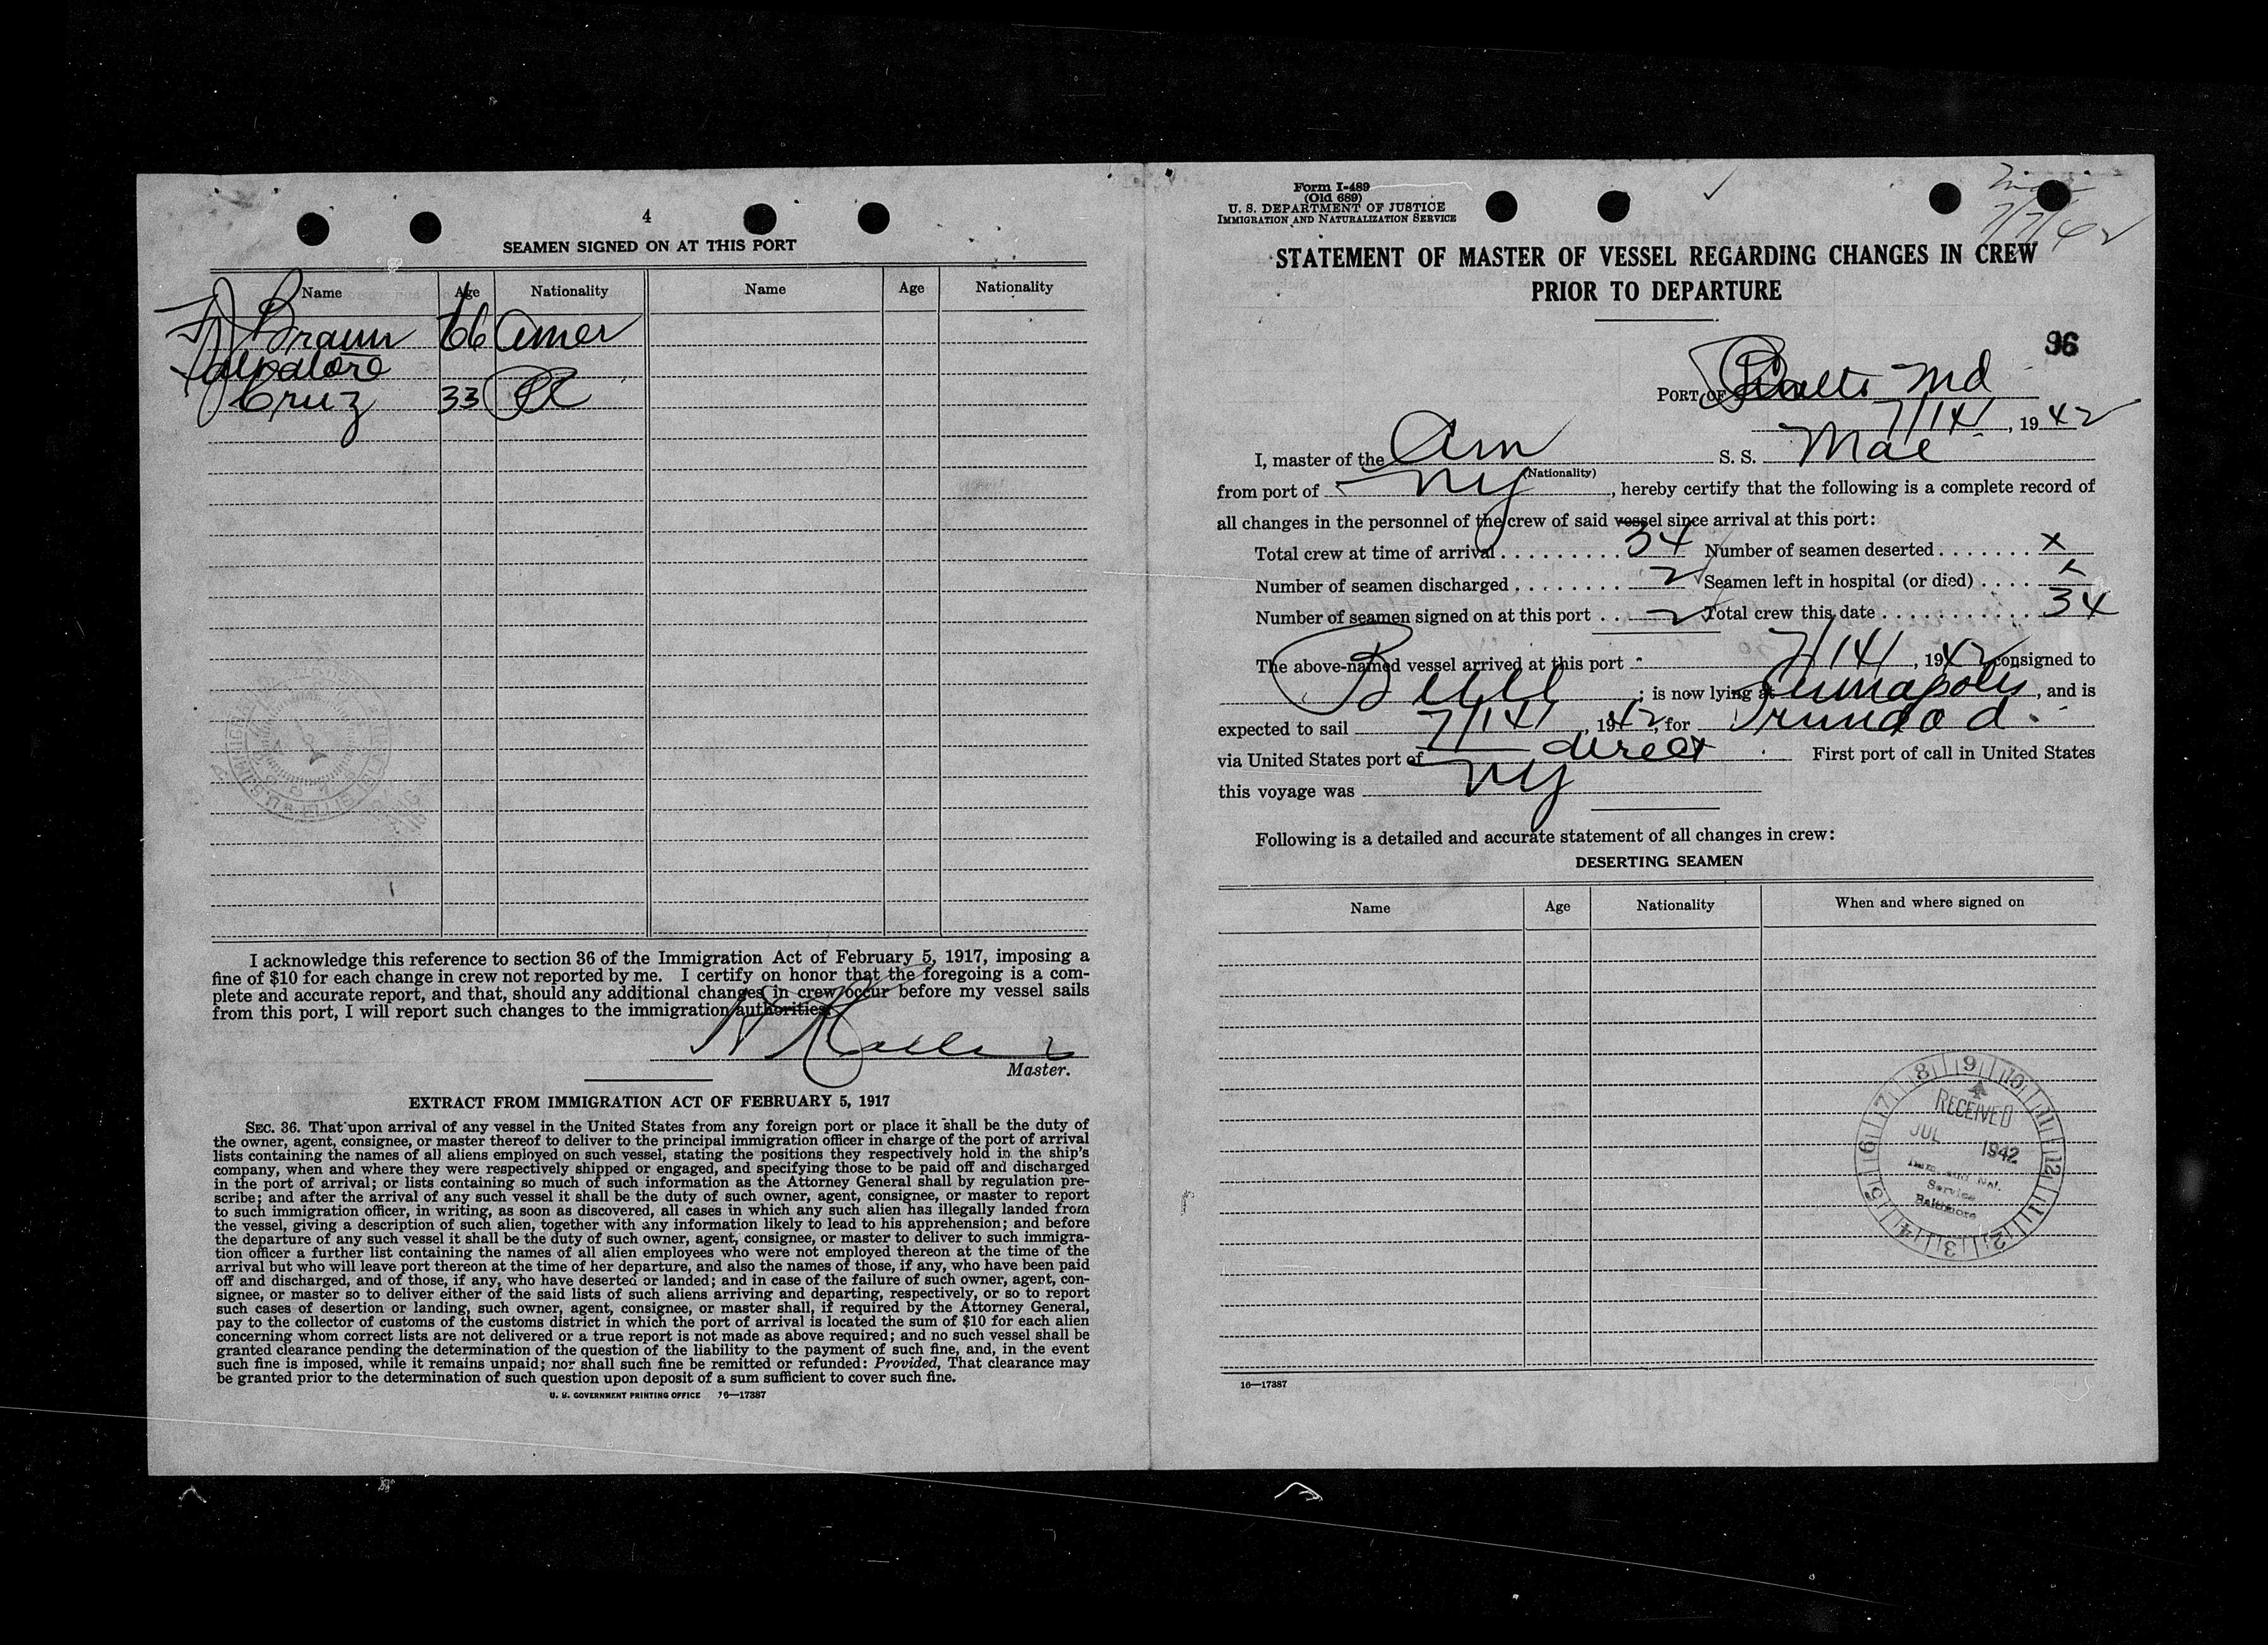 4
SEAMEN SIGNED ON AT THIS PORT
Name Age Nationality Name Age Nationality
Braun 66 Amer
Salvatore
Cruz 33 PR
I acknowledge this reference to section 36 of the Immigration Act of February 5, 1917, imposing a
fine of $10 for each change in crew not reported by me. I certify on honor that the foregoing is a com-
plete and accurate report, and that, should any additional changes in crew occur before my vessel sails
from this port, I will report such changes to the immigration authorities.
Master.
EXTRACT FROM IMMIGRATION ACT OF FEBRUARY 5, 1917
SEC. 36. That upon arrival of any vessel in the United States from any foreign port or place it shall be the duty of
the owner, agent, consignee, or master thereof to deliver to the principal immigration officer in charge of the port of arrival
lists containing the names of all aliens employed on such vessel, stating the positions they respectively hold in the ship's
company, when and where they were respectively shipped or engaged, and specifying those to be paid off and discharged
in the port of arrival; or lists containing so much of such information as the Attorney General shall by regulation pre-
scribe; and after the arrival of any such vessel it shall be the duty of such owner, agent, consignee, or master to report
to such immigration officer, in writing, as soon as discovered, all cases in which any such alien has illegally landed from
the vessel, giving a description of such alien, together with any information likely to lead to his apprehension; and before
the departure of any such vessel it shall be the duty of such owner, agent, consignee, or master to deliver to such immigra-
tion officer a further list containing the names of all alien employees who were not employed thereon at the time of the
arrival but who will leave port thereon at the time of her departure, and also the names of those, if any, who have been paid
off and discharged, and of those, if any, who have deserted or landed; and in case of the failure of such owner, agent, con-
signee, or master so to deliver either of the said lists of such aliens arriving and departing, respectively, or so to report
such cases of desertion or landing, such owner, agent, consignee, or master shall, if required by the Attorney General,
pay to the collector of customs of the customs district in which the port of arrival is located the sum of $10 for each alien
concerning whom correct lists are not delivered or a true report is not made as above required; and no such vessel shall be
granted clearance pending the determination of the question of the liability to the payment of such fine, and, in the event
such fine is imposed, while it remains unpaid; nor shall such fine be remitted or refunded: Provided, That clearance may
be granted prior to the determination of such question upon deposit of a sum sufficient to cover such fine.
U. S. GOVERNMENT PRINTING OFFICE 16—17387
Form I-489
(Old 689)
U. S. DEPARTMENT OF JUSTICE
IMMIGRATION AND NATURALIZATION SERVICE
7/7/42
STATEMENT OF MASTER OF VESSEL REGARDING CHANGES IN CREW
PRIOR TO DEPARTURE
96
PORT OF Balto Md
7/14, 1942
I, master of the Am S. S. Mae
(Nationality)
from port of NY, hereby certify that the following is a complete record of
all changes in the personnel of the crew of said vessel since arrival at this port:
Total crew at time of arrival 34 Number of seamen deserted x
Number of seamen discharged 2 Seamen left in hospital (or died) x
Number of seamen signed on at this port 2 Total crew this date 34
The above-named vessel arrived at this port 7/14, 1942 consigned to
Bull; is now lying at Annapolis, and is
expected to sail 7/14, 1942, for Trinidad.
via United States port of direct. First port of call in United States
this voyage was NY
Following is a detailed and accurate statement of all changes in crew:
DESERTING SEAMEN
Name Age Nationality When and where signed on
8 9 10 11 12 1 2 3 4 5 6 7
RECEIVED
JUL 1942
Imm. and Nat.
Service
Baltimore
16—17387